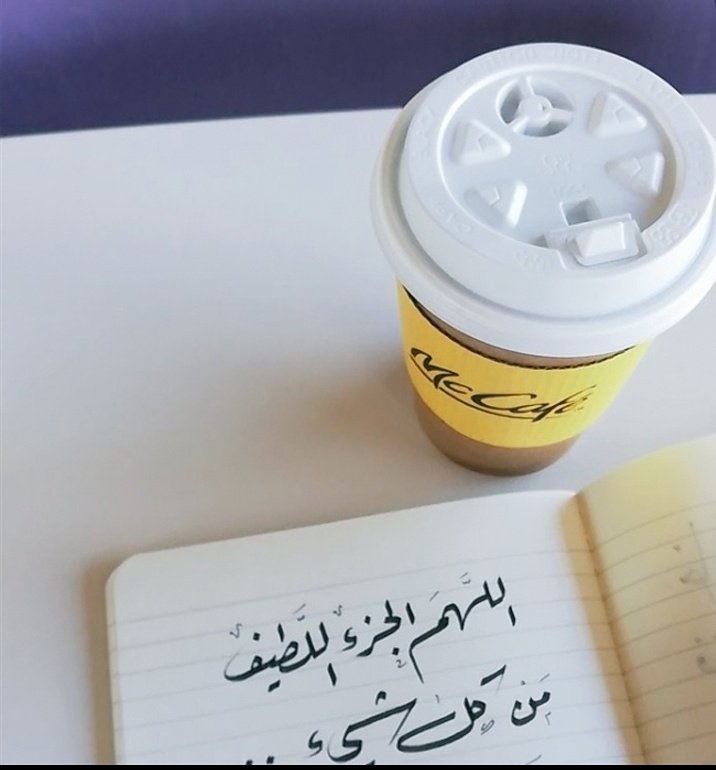 McCafé
اللهم الجزء اللَّطيف
مِن كل شيء ..